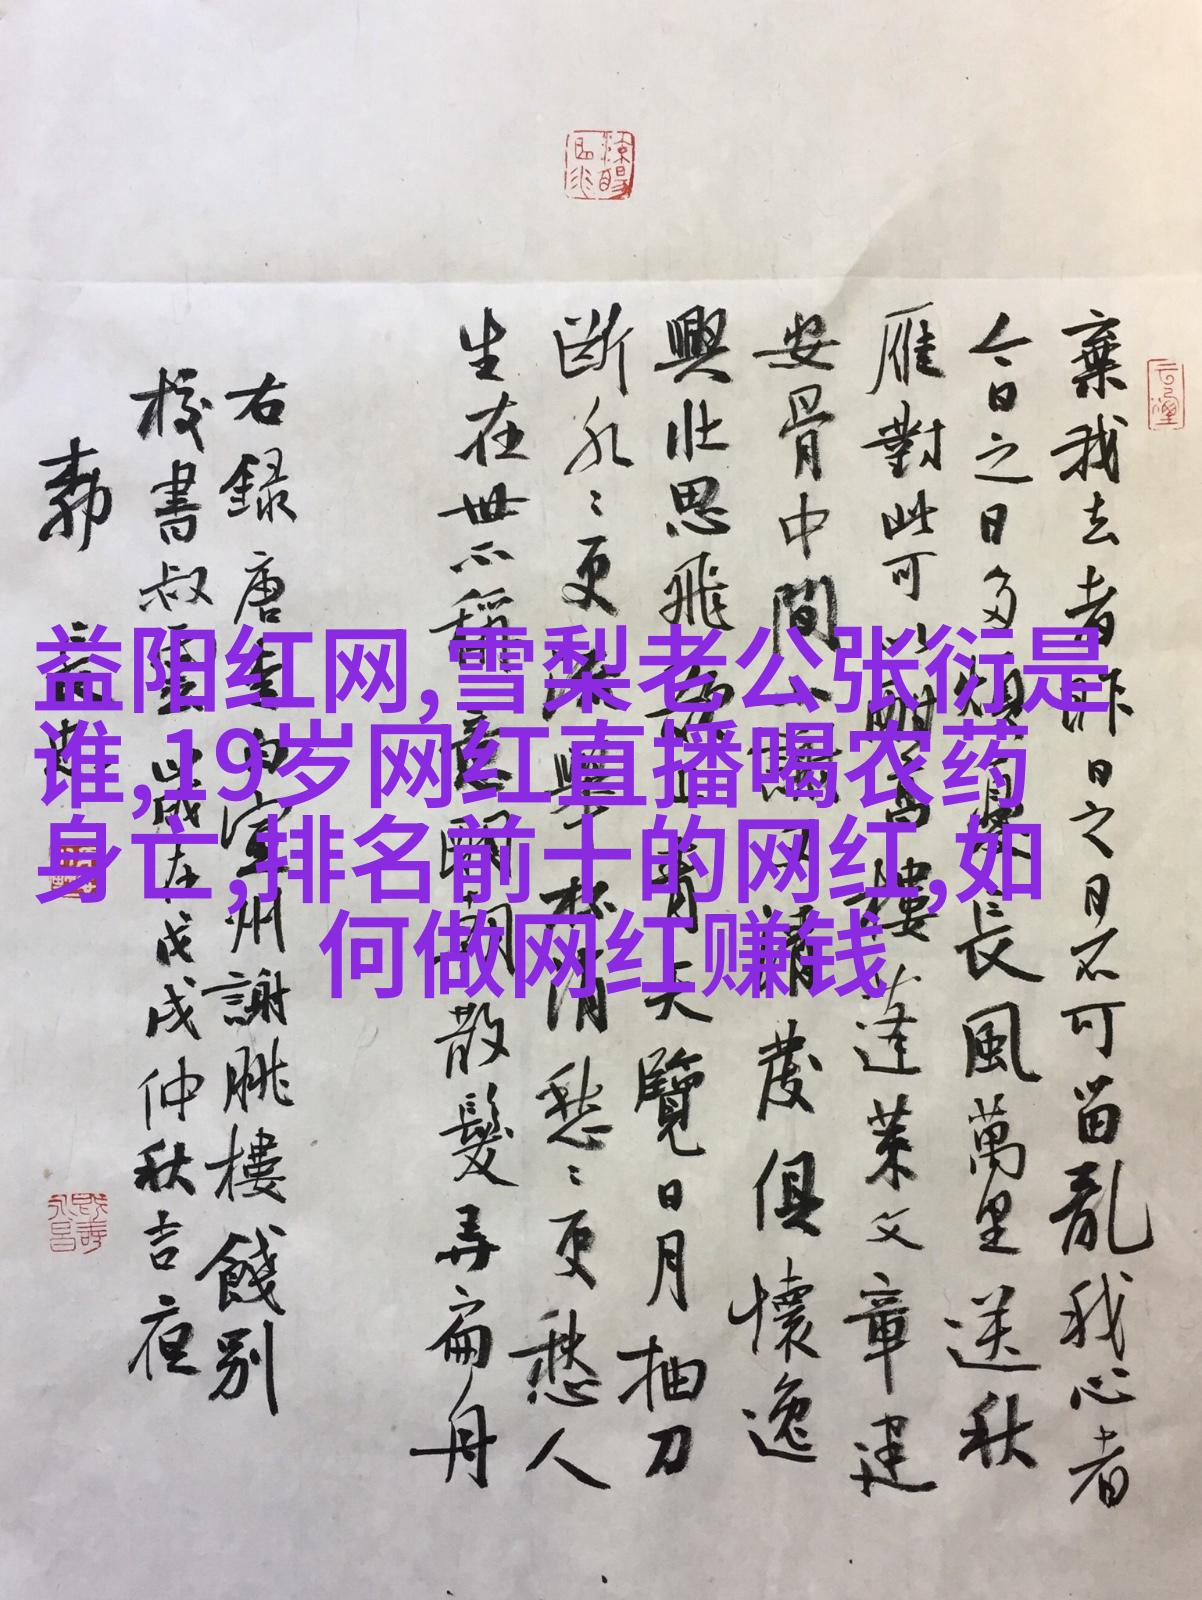 益阳红网,雪梨老公张衍是
谁,19岁网红直播喝农药
身亡,排名前十的网红,如
何做网红赚钱
棄我去者昨日之日不可留亂我心者
今日之日多煩憂長風萬里送秋
雁對此可以酣高樓蓬萊文章建
安骨中間小謝又清發俱懷逸
興壯思飛欲上青天覽日月抽刀
斷水〻更流舉杯消愁〻更愁人
生在世不稱意朝散髮弄扁舟
右録唐李白宣州謝朓樓餞別
校書叔雲歲在戊戌仲秋吉夜